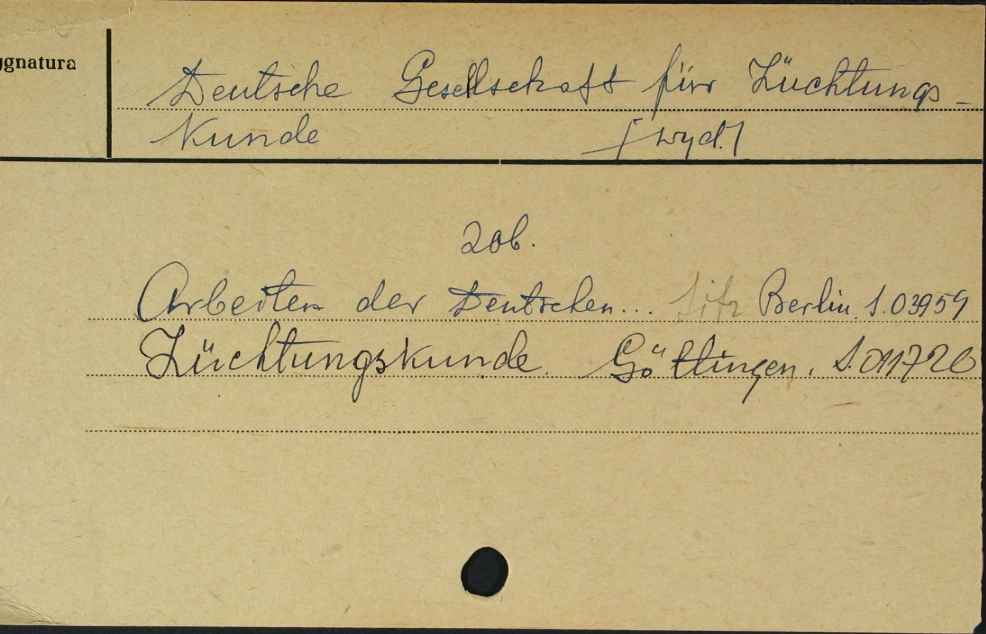 ygnatura
Deutsche Gesellschaft für Züchtungs-
kunde [wyd.]
zob.
Arbeiten der Deutschen... Sitz Berlin. S.03959
Züchtungskunde. Göttingen. S.011720